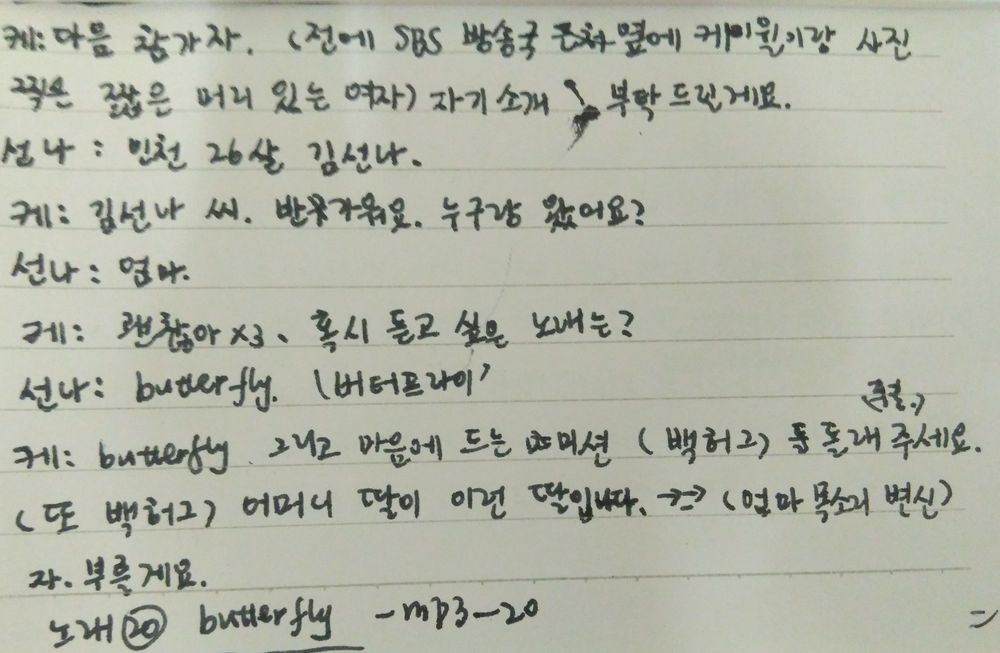 케: 다음 참가자. (전에 SBS 방송국 근처 옆에 케이윌이랑 사진
찍은 짧은 머리 있는 여자) 자기소개 부탁드린게요.
선나: 인천 26살 김선나.
케: 김선나 씨. 반가워요. 누구랑 왔어요?
선나: 엄마.
케: 괜찮아 x3. 혹시 듣고 싶은 노래는?
선나: butterfly. (버터프라이)
케: butterfly 그리고 마음에 드는 미션 (백허그) 돌래 주세요.
(또 백허그) 어머니 딸이 이런 딸입니다. →→ (엄마 목소리 변신)
자. 부를게요.
노래 20 butterfly -mp3-20